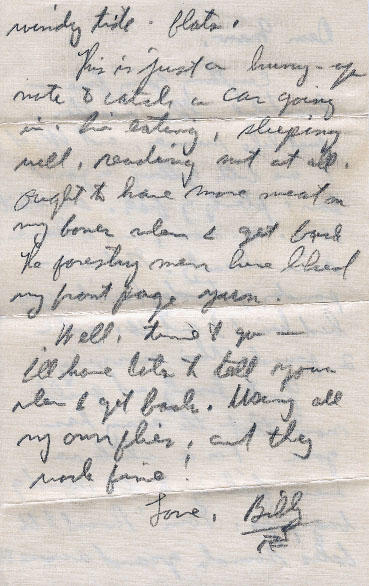 windy tide-flats.
This is just a hurry-up
note to catch a car going
in. I'm eating, sleeping
well, reading not at all.
Ought to have more meat on
my bones when I get back
The forestry men here liked
my front page yarn.
Well, time to go —
I'll have lots to tell you
when I get back. Using all
my own flies, and they
work fine!
Love, Billy